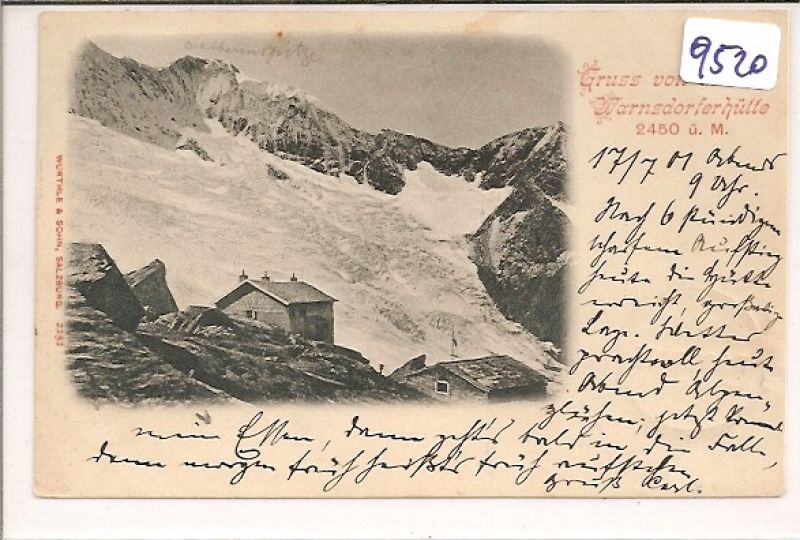 9520
Gruss von
Warnsdorferhütte
2450 ü. M.
17/7 01 Abends
9 Uhr.
Nach 6 stündigem
scharfem Aufstieg
heute die Hütte
erreicht, großartige
Lage. Wetter
prachtvoll heute
Abend Alpen-
glühen; jetzt kommt
mein Essen, dann geht's bald in die Falle,
denn morgen früh heißts früh aufstehen
Gruß Carl.
WÜRTHLE & SOHN, SALZBURG. 2252